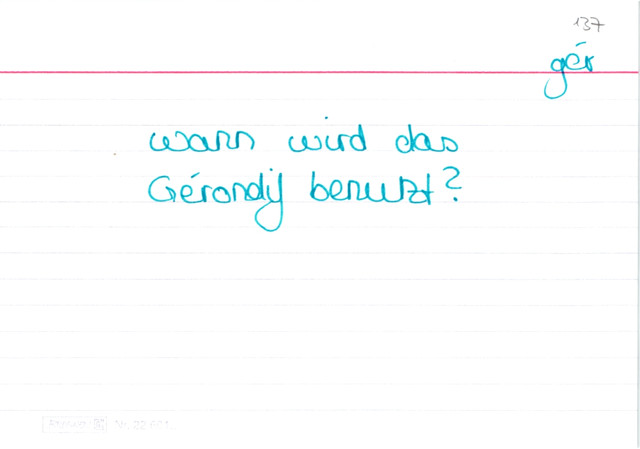 137
gér
wann wird das
Gérondif benutzt?